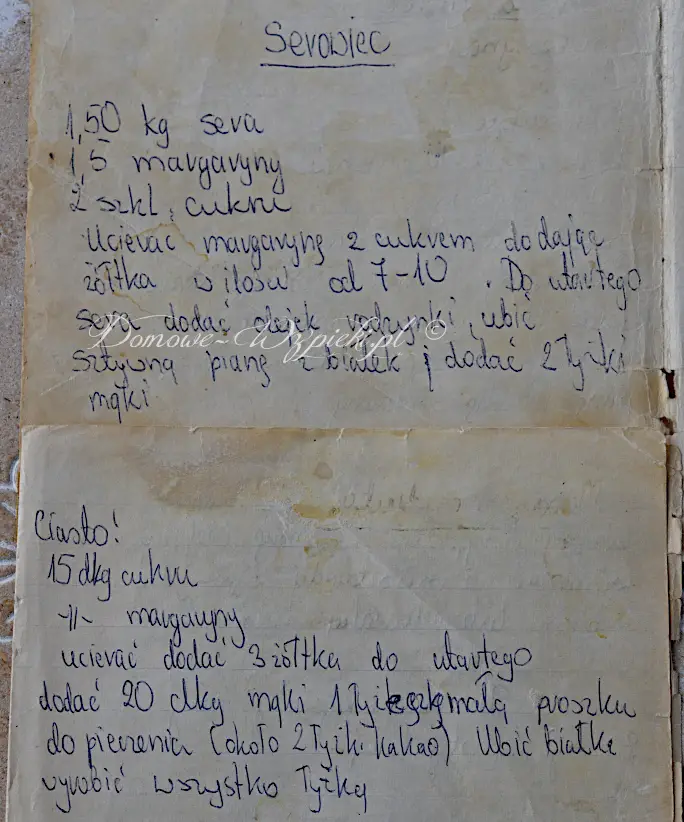 Serowiec
1,50 kg sera
1,5 margaryny
2 szkl. cukru
Ucierać margarynę z cukrem dodając
żółtka w ilości od 7-10. Do utartego
sera dodać olejek rodzynki, ubić
Domowe-Wypieki.pl ©
sztywną pianę z białek i dodać 2 łyżki
mąki
Ciasto!
15 dkg cukru
-||- margaryny
ucierać dodać 3 żółtka do utartego
dodać 20 dkg mąki 1 łyżeczkę małą proszku
do pieczenia (około 2 łyżk. kakao) Ubić białka
wyrobić wszystko łyżką